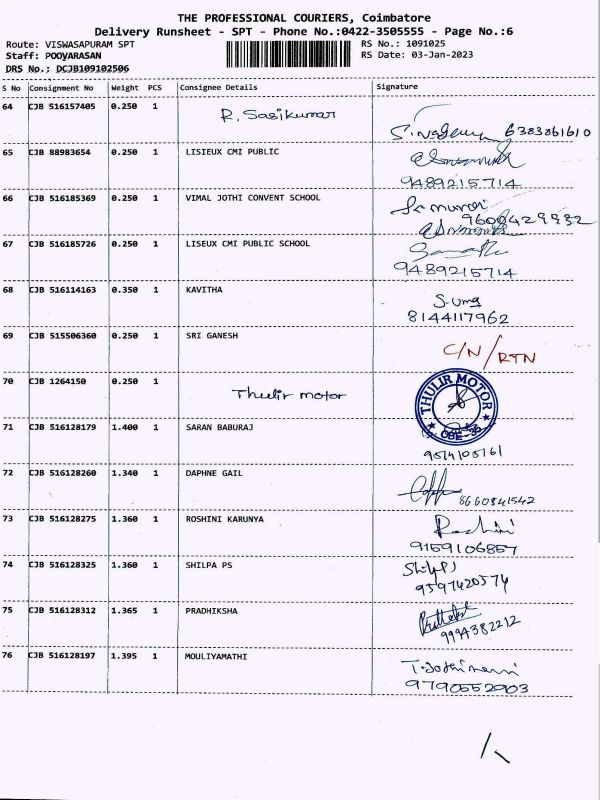 THE PROFESSIONAL COURIERS, Coimbatore
Delivery Runsheet - SPT - Phone No.:0422-3505555 - Page No.:6
Route: VISWASAPURAM SPT RS No.: 1091025
Staff: POOYARASAN RS Date: 03-Jan-2023
DRS No.: DCJB109102506
S No Consignment No Weight PCS Consignee Details Signature
64 CJB 516157405 0.250 1 R. Sasikumar
6383861610
65 CJB 88983654 0.250 1 LISIEUX CMI PUBLIC
9489215714
66 CJB 516185369 0.250 1 VIMAL JOTHI CONVENT SCHOOL
9600429832
67 CJB 516185726 0.250 1 LISEUX CMI PUBLIC SCHOOL
9489215714
68 CJB 516114163 0.350 1 KAVITHA S-uma
8144117962
69 CJB 515506360 0.250 1 SRI GANESH C/N/RTN
70 CJB 1264150 0.250 1 Thulir motor THULIR MOTOR
CBE-35
71 CJB 516128179 1.400 1 SARAN BABURAJ
72 CJB 516128260 1.340 1 DAPHNE GAIL
8660841542
73 CJB 516128275 1.360 1 ROSHINI KARUNYA Roshini
9159106857
74 CJB 516128325 1.360 1 SHILPA PS Shilpa
9597420574
75 CJB 516128312 1.365 1 PRADHIKSHA
9994382212
76 CJB 516128197 1.395 1 MOULIYAMATHI T.Jothimani
9790552903